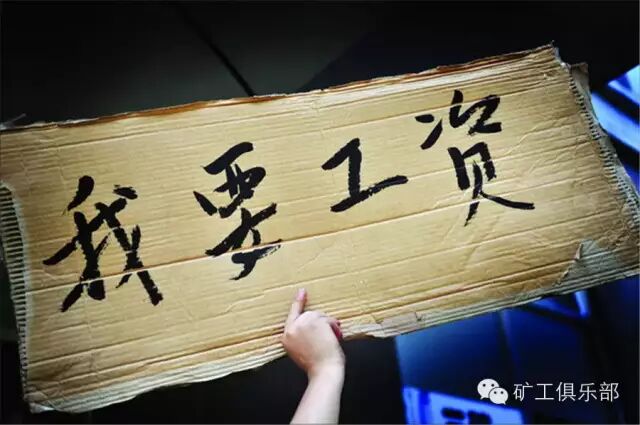 我要工资
矿工俱乐部